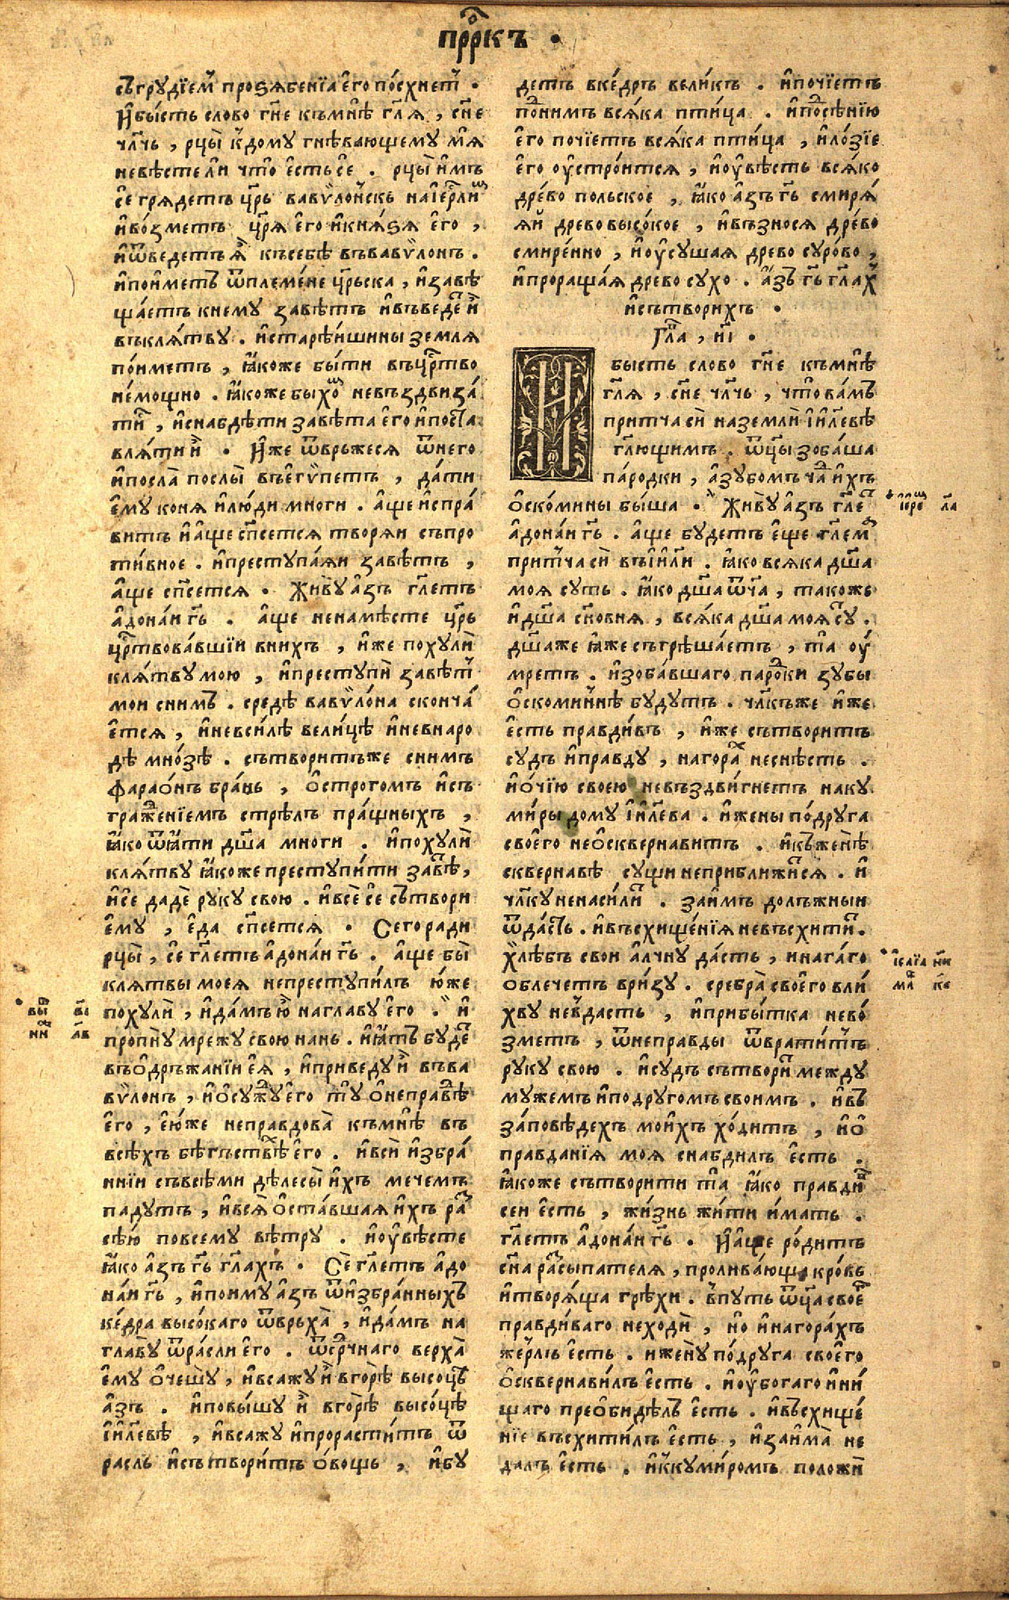 прⷪ҇ркъ •
съгрудїемⸯ проꙁѧбенїа его посхнетⸯ •
И҆бысть слово гн҃е къмнѣ гл҃ѧ , сн҃е
чл҃чь , рцы к дому гнѣвающему мѧ
невѣстели что есть се . рцы имъ
се грѧдетъ цр҃ь вавѷлонскъ на іерⷭ҇лимъ
ивозметъ цр҃ѧ его и кнѧꙁѧ его ,
иѿведетъ ꙗ къ себѣ въ вавѷлонъ .
и поиметъ ѿ племене цр҃ьска , и завѣ
щаетъ к нему завѣтъ и въведе и
въ клѧтву . и старѣишины земля
поиметъ , ꙗкоже быти въ црⷭ҇тво
немощно . ꙗкоже быхѡ невъздвиза
ти , и снабдѣти завѣта его и поста
влѧти и • Иже ѿвръжесѧ ѿ него
и посла послы въ егѷпетъ , дати
ему конѧ и люди многи . аще испра
витъ и аще сп҃сетсѧ творѧи съпро
тивное . и преступаѧи завѣтъ ,
аще сп҃сетсѧ • Живу азъ гл҃етъ
адонаи гь҃ . аще не на мѣсте цр҃ь
црⷭ҇твовавшїи в нихъ , иже похули
клѧтву мою , и преступи завѣтⸯ
мои с нимъ . средѣ вавѷлона сконча
етсѧ , и не в силѣ велицѣ и не в наро
дѣ мнозѣ . сътворитъ же с нимъ
фараонъ брань , острогомъ и съ
граженїемъ стрѣлъ пращныхъ ,
ꙗко ѿꙗти дш҃а многи . и похули
клѧтву ꙗкоже преступити завѣ ,
и се даде руку свою . и все се сътвори
ему , еда сп҃сетсѧ • Сего ради
рцы , се гл҃етъ адонаи гь҃ . аще бы
клѧтвы моеѧ не преступилъ юже
похули , и дамъ ю на главу его . и
пропну мрежу свою нань . и ꙗтъ буде
въ одръжанїи еѧ , и приведу и въ ва
вѷлонъ , и осужу его ту о неправⷣѣ
его , еюже неправдова къ мнѣ въ
всѣхъ бѣгъствїѣ его . и вси избра
ннїи съ всѣми дѣлесы ихъ мечемъ
падутъ , и всѧ оставшаѧ ихъ ра
сѣю по всему вѣтру . и оувѣсте
ꙗко азъ гь҃ гл҃ахъ • Се гл҃етъ адо
наи гь҃ , и поиму азъ ѿ избранныхъ
кедра высокаго ѿ врьха , и дамъ на
главу ѿрасли его . ѿ срⷣечнаго верха
ему очешу , и всажу и в горѣ высоцѣ
азъ . и повышу и в горѣ высоцѣ
іи҃левѣ , и всажу и прорастить ѿ
расль и сътворитъ овощь , и бу
детъ в кедръ великъ . и почїетъ
под нимъ всѧка птица . и по сѣнїю
его почїетъ всѧка птица , и лозїе
его оустроитсѧ , и оувѣсть всѧко
древо польское , ꙗко азъ гь҃ смирѧ
ѧи древо высокое , и възносѧ древо
смиренно , и оусушаѧ древо сурово ,
и проращаѧ древо сухо . азъ гь҃ гл҃ахъ
и сътворихъ •
Гл҃а , и҃і •
И бысть слово гн҃е къ мнѣ
гл҃ѧ , сн҃е чл҃чь , что вамъ
притча си на земли іи҃левѣ
гл҃ющимъ . ѿц҃ы зобаша
пародки , а зубомъ чадъ ихъ
оскомины быша • Живу азъ гл҃е
адонаи гь҃ . аще будетъ еще гл҃ема
притча си въ іи҃ли . ꙗко всѧка дш҃а
моѧ суть . ꙗко дш҃а ѿч҃а , такоже
и дш҃а сн҃овнѧ , всѧка дш҃а моѧ су .
дш҃а же ꙗже съгрѣшаетъ , та оу
мретъ . изобавшаго пародки зубы
оскоминнѣ будутъ . чл҃къ же иже
есть правдивъ , иже сътворитъ
судъ и правду , на горахъ не снѣсть .
и очїю своею не въздвигнетъ на ку
миры дому іи҃лева . и жены подруга
своего не осквернавитъ . и къ женѣ
сквернавѣ сущи не приближисѧ . и
чл҃ку не насили . заимъ долъжныи
ѿдасть . и въсхищенїѧ не въсхити .
хлѣбъ свои алчну дасть , и нагаго
облечетъ в ризу . сребра своего в ли
хву не вдасть , и прибытка не во
зметъ , ѿ неправды ѿвратитъ
руку свою . и судъ сътвори между
мужемъ и подругомъ своимъ . и въ
заповѣдехъ моихъ ходитъ , и о
правданїѧ моѧ снабдилъ есть .
ꙗкоже сътворити та ꙗко правди
сеи есть , жизнь жити имать .
гл҃етъ адонаи гь҃ • И аще родитъ
сн҃а расыпателѧ , проливающа кровь
и творѧща грѣхи . в путь ѿц҃а свое
правдиваго не ходи , но и на горахъ
жерлъ есть . и жену подруга своего
осквернавилъ есть . и оубогаго и ни
щаго преобидѣлъ есть . и въсхище
нїе въсхитилъ есть , и заима не
далъ есть . и к кумиромъ положи
іере л҃а
исаїа н҃и